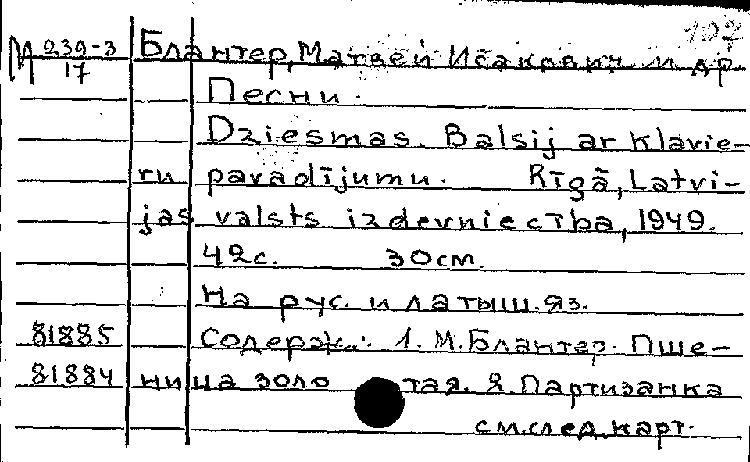 107
М 239-3 Блантер, Матвей Исакович и др.
17
Песни.
Dziesmas. Balsij ar klavie-
ru pavadījumu. Rīgā, Latvi-
jas valsts izdevniecība, 1949.
42с. 30см.
На рус. и латыш. яз.
81885 Содерж.: 1. М. Блантер. Пше-
81884 ница золотая. 2. Партизанка
см. след. карт.